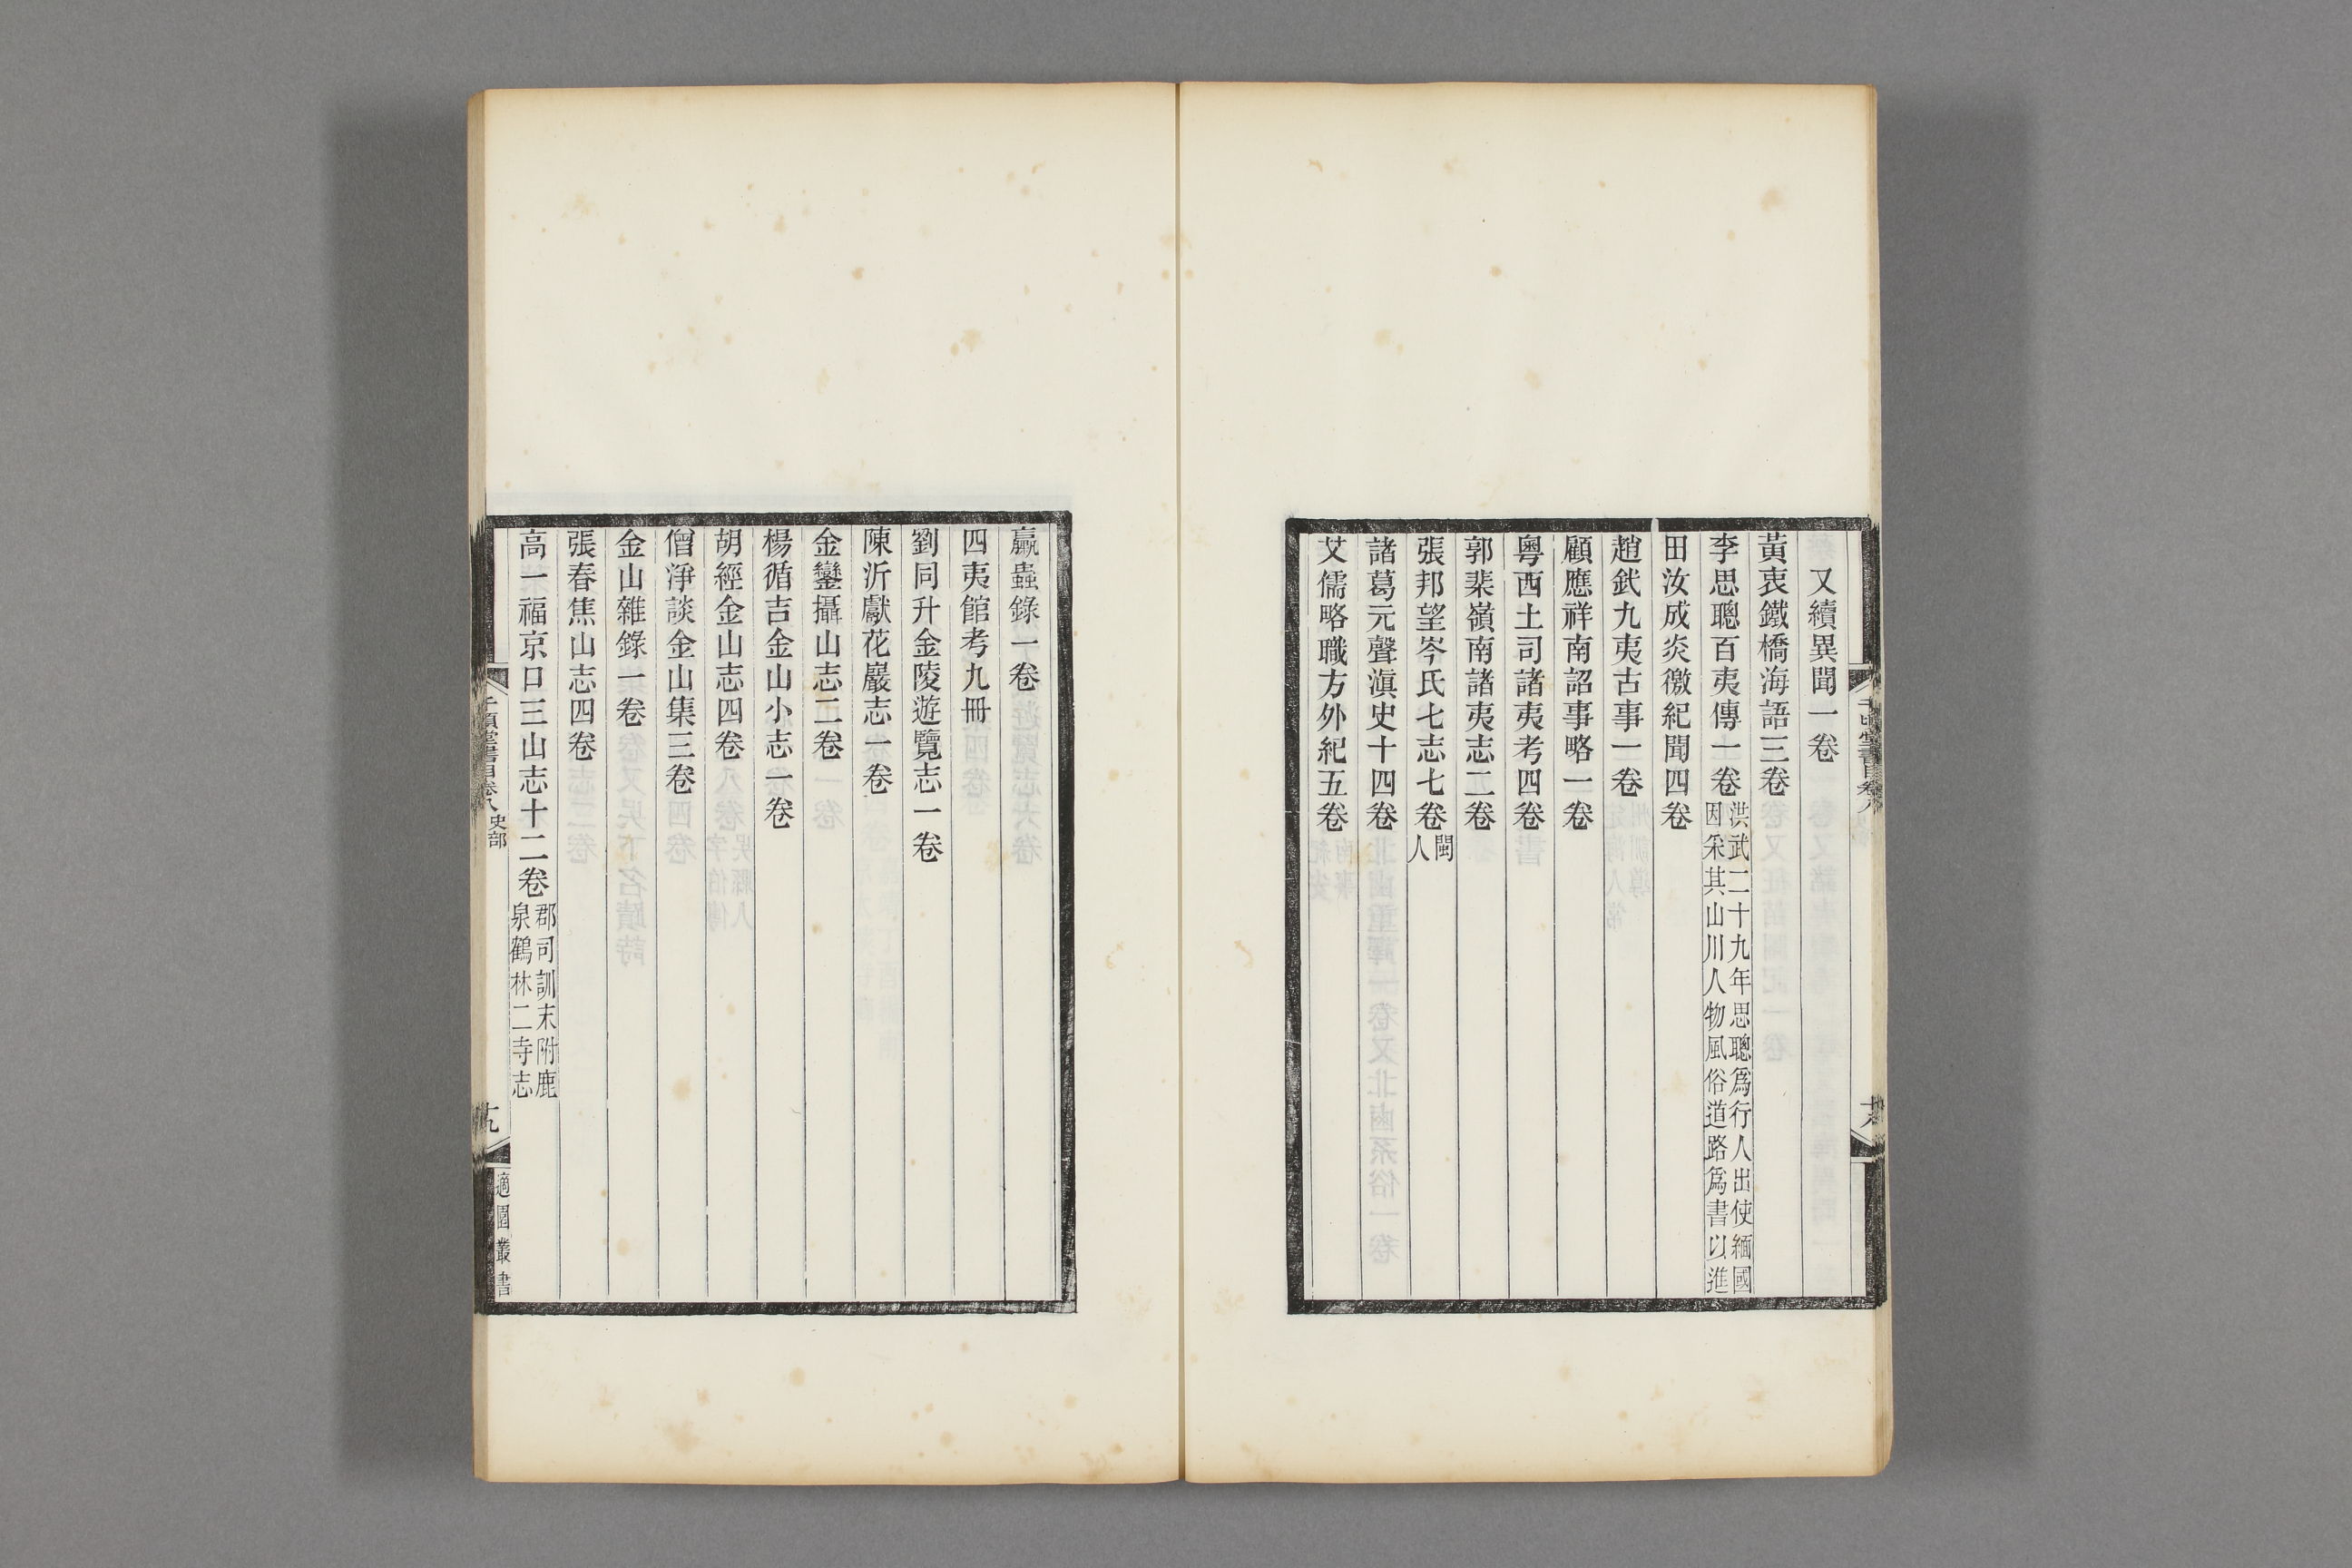 又續異聞一卷
黃衷鐵橋海語三卷
李思聰百夷傳一卷洪武二十九年思聰爲行人出使緬國因采其山川人物風俗道路爲書以進
田汝成炎徼紀聞四卷
趙釴九夷古事一卷
顧應祥南詔事略一卷
粵西土司諸夷考四卷
郭棐嶺南諸夷志二卷
張邦望岑氏七志七卷閩人
諸葛元聲滇史十四卷
艾儒略職方外紀五卷
臝蟲錄一卷
四夷館考九冊
劉同升金陵遊覽志一卷
陳沂獻花巖志一卷
金鑾攝山志二卷
楊循吉金山小志一卷
胡經金山志四卷
僧淨談金山集三卷
金山雜錄一卷
張春焦山志四卷
高一福京口三山志十二卷郡司訓末附鹿泉鶴林二寺志
千頃堂書目卷八 史部
十九
適園叢書